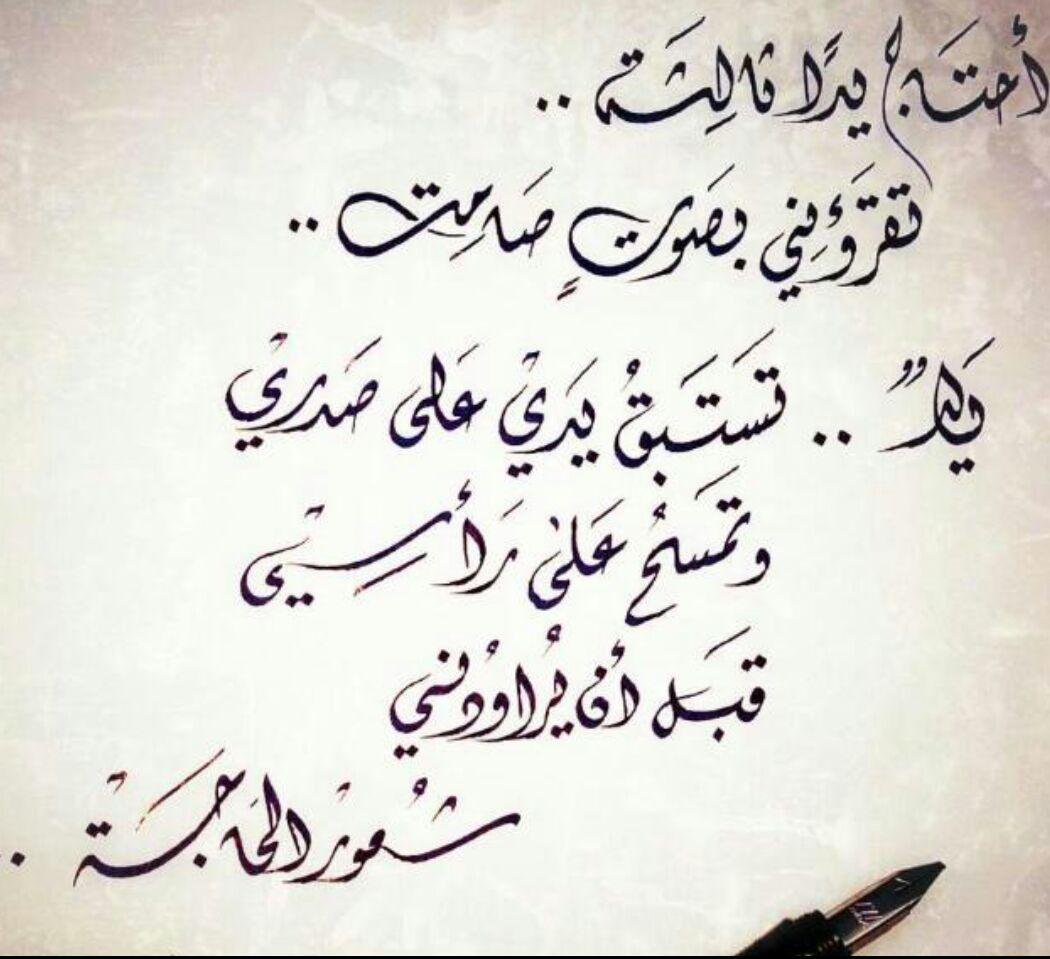 أحتَاج يدًا ثالِثَة ..
تقرَؤُني بصَوتٍ صَامِت ..
يَدٌ .. تَستَبقُ يَديْ عَلى صَدريْ
وتمسَحُ عَلىْ رَأسِيْ
قبَل أن يُراوُدنيْ
شعُورْ الحَاجَةْ ..